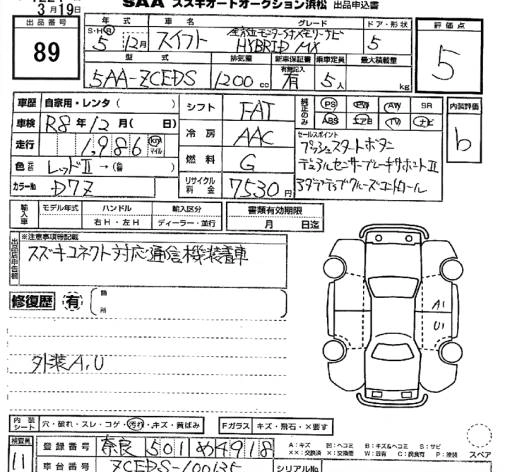 SAA スズキオートオークション浜松 出品申込書
3月19日
出品番号
89
年式 車名 グレード ドア・形状 評価点
S・H・R 5年 12月 スイフト 全方位モニター付メモリーナビ HYBRID MX 5 5
型式 排気量 新車保証書 乗車定員 最大積載量
5AA-ZCEDS 1200cc 有無記入 有 5人 kg
車歴 自家用・レンタ( ) シフト FAT 純正のみ PS PW AW SR 内装評価
車検 R8年12月(日) 冷房 AAC ABS TV ナビ b
走行 1,986 km マイル
セールスポイント
プッシュスタートボタン
色 レッドⅡ →( ) 燃料 G デュアルセンサーブレーキサポートⅡ
カラーNo. D7Z リサイクル料金 7530円 アダプティブクルーズコントロール
輸入車 モデル年式 ハンドル 輸入区分 書類有効期限
右H・左H ディーラー・並行 月 日迄
出品店申告欄
※注意事項等記載
スズキコネクト対応通信機装着車
修復歴 有 箇所
A1
U1
外装A,U
内装シート 穴・破れ・スレ・コゲ・汚れ・キズ・黄ばみ Fガラス キズ・飛石・×要す
検査員 11 登録番号 奈良 501 め 4918
A:キズ 凹:ヘコミ B:キズ&ヘコミ S:サビ
××:交換済 ×:交換要 W:波有 C:腐食有 P:塗装 スペア
車台番号 ZCEDS-100135 シリアルNo.